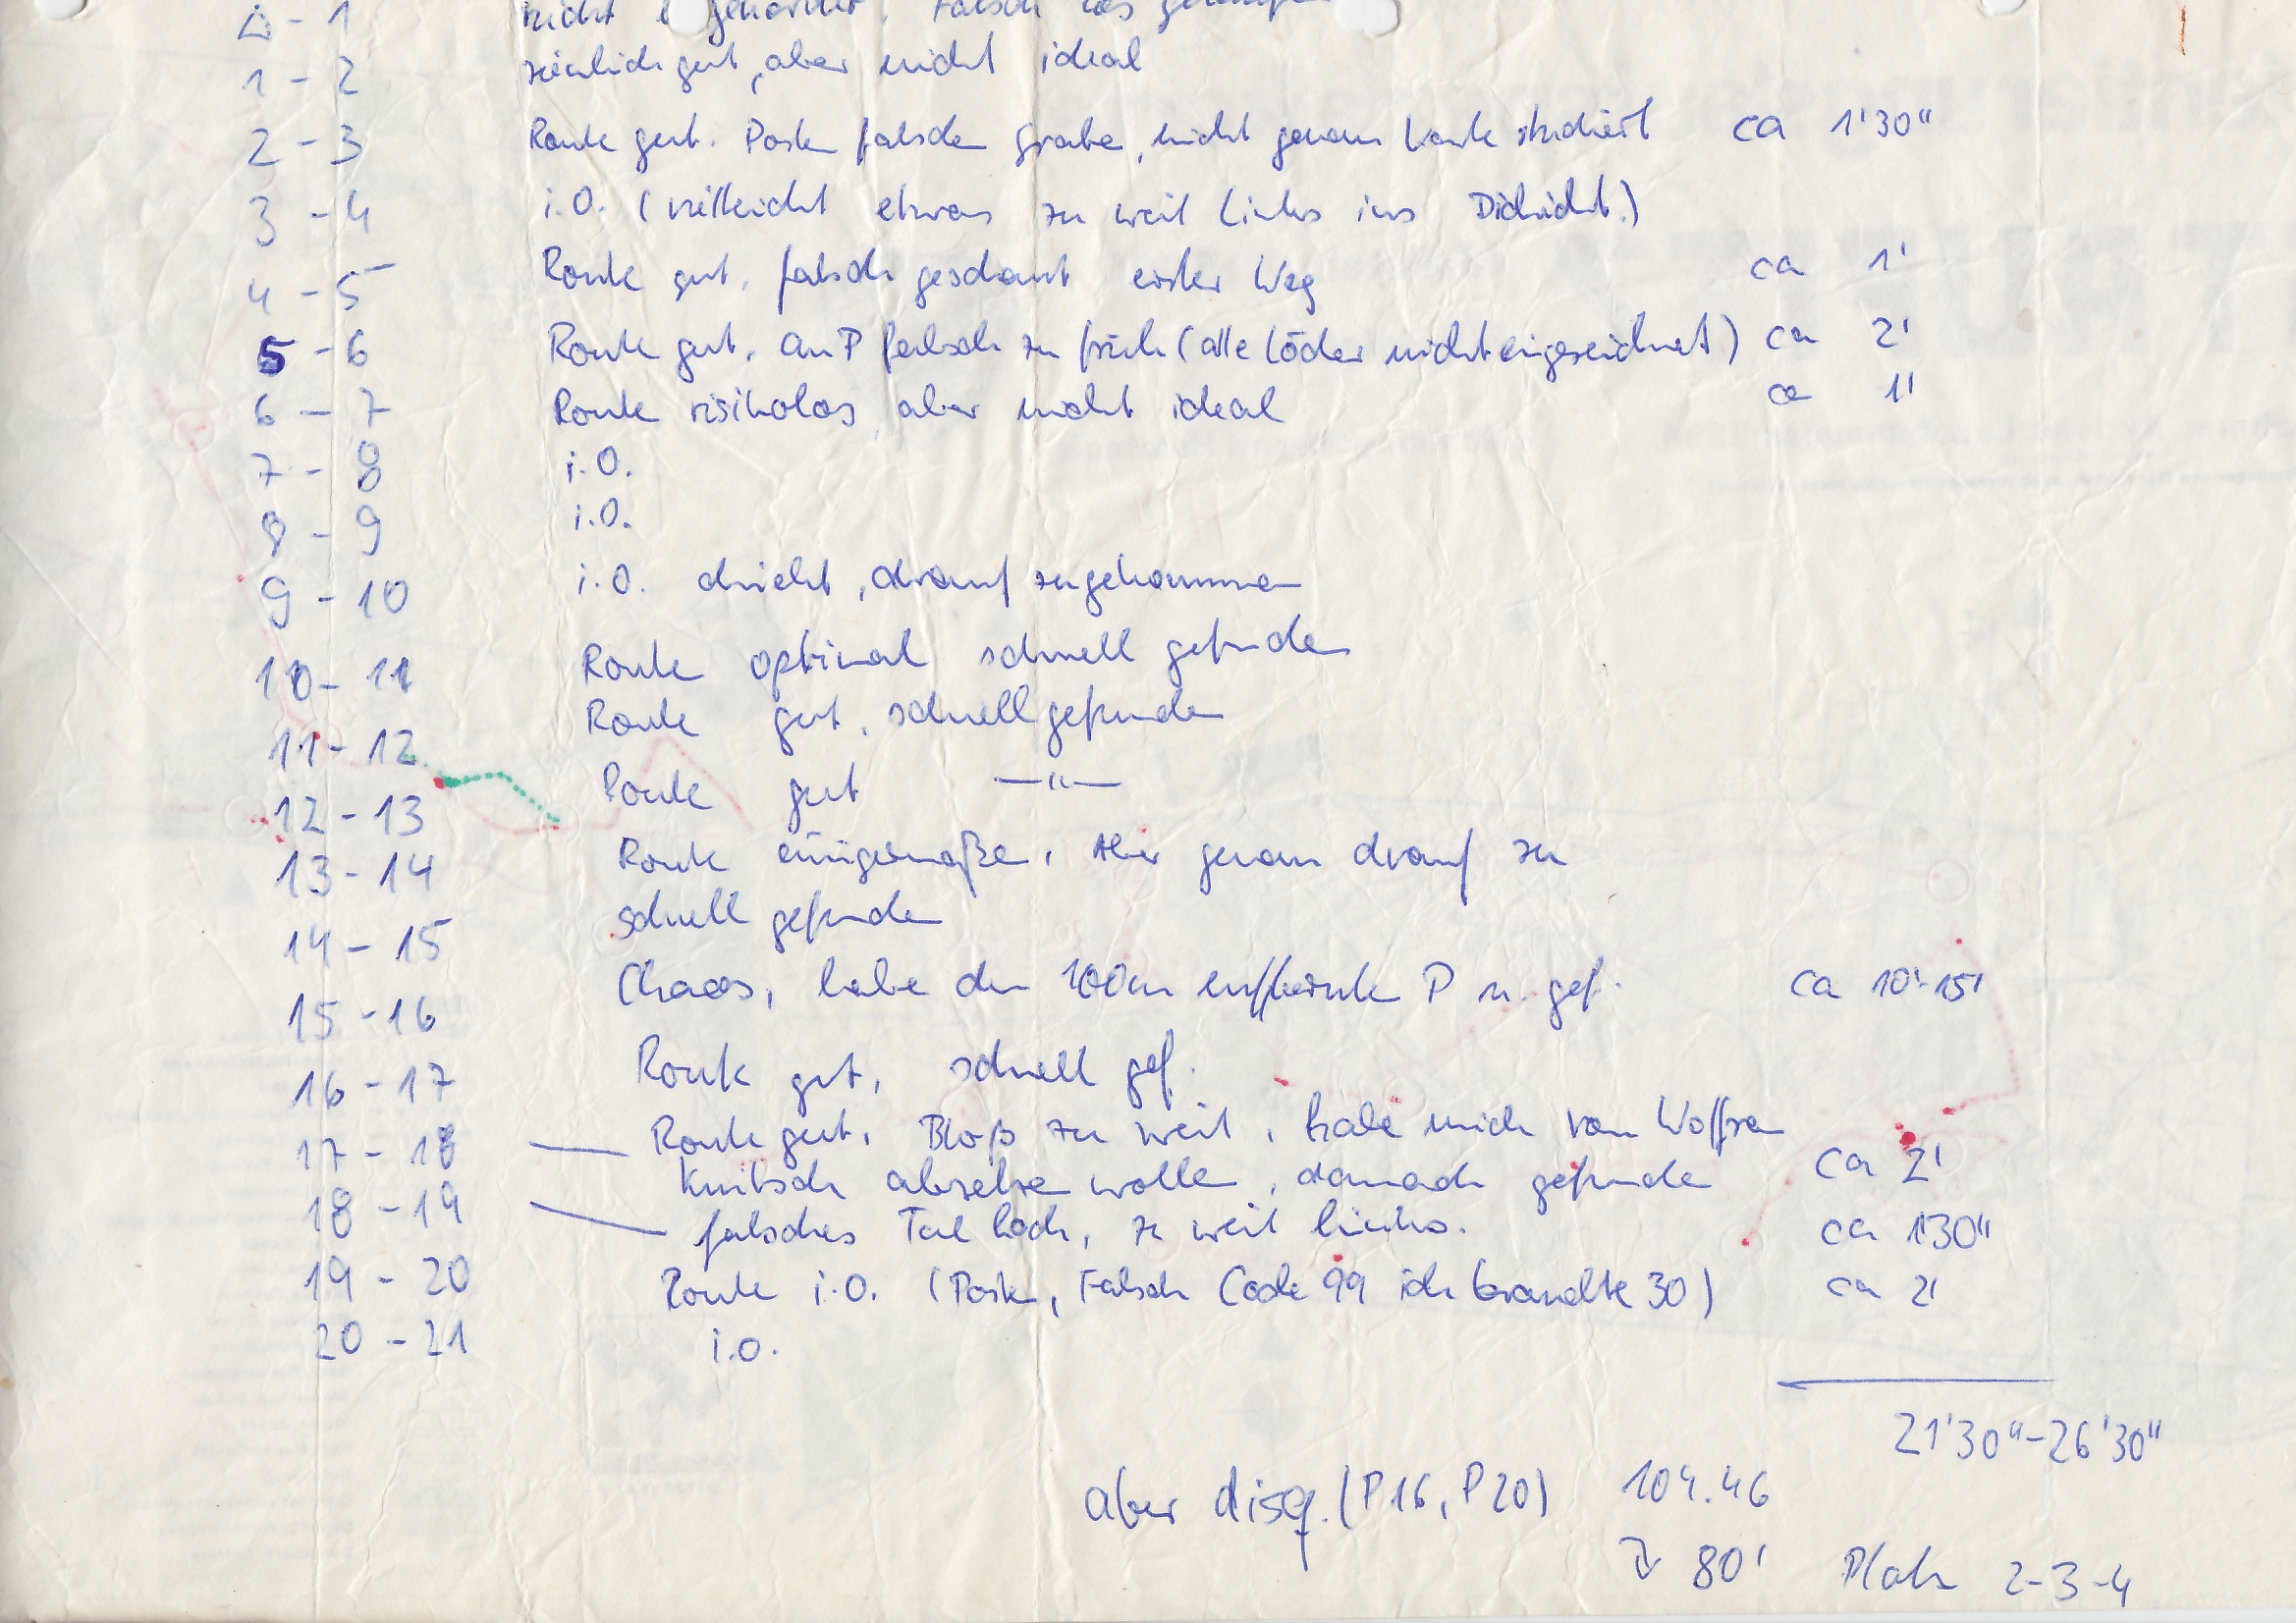 △ - 1 nicht
1 - 2 ziemlich gut, aber nicht ideal
2 - 3 Route gut. Posten falschen Graben, nicht genau Karte studiert ca 1'30"
3 - 4 i.O. (vielleicht etwas zu weit links ins Dickicht.)
4 - 5 Route gut, falsch geschaut erster Weg ca 1'
5 - 6 Route gut, am P falsch zu früh (alle Löcher nicht eingezeichnet) ca 2'
6 - 7 Route risikolos, aber nicht ideal ca 1'
7 - 8 i.O.
8 - 9 i.O.
9 - 10 i.O. direkt, drauf zugekommen
10 - 11 Route optimal schnell gefunden
11 - 12 Route gut, schnell gefunden
12 - 13 Route gut —"—
13 - 14 Route einigermaßen, aber genau drauf zu
14 - 15 schnell gefunden
15 - 16 Chaos, habe den 100m entfernte P n. gef. ca 10'-15'
16 - 17 Route gut, schnell gef.
17 - 18 — Route gut, Bloß zu weit, habe mich von
absetzen wollen, danach gefunden ca 2'
18 - 19 — falsches Tal hoch, zu weit links. ca 1'30"
19 - 20 Route i.O. (Posten, Falsch Code 99 ich brauchte 30) ca 2'
20 - 21 i.O.
21'30"-26'30"
aber disq. (P16, P20) 104.46
80' Platz 2-3-4